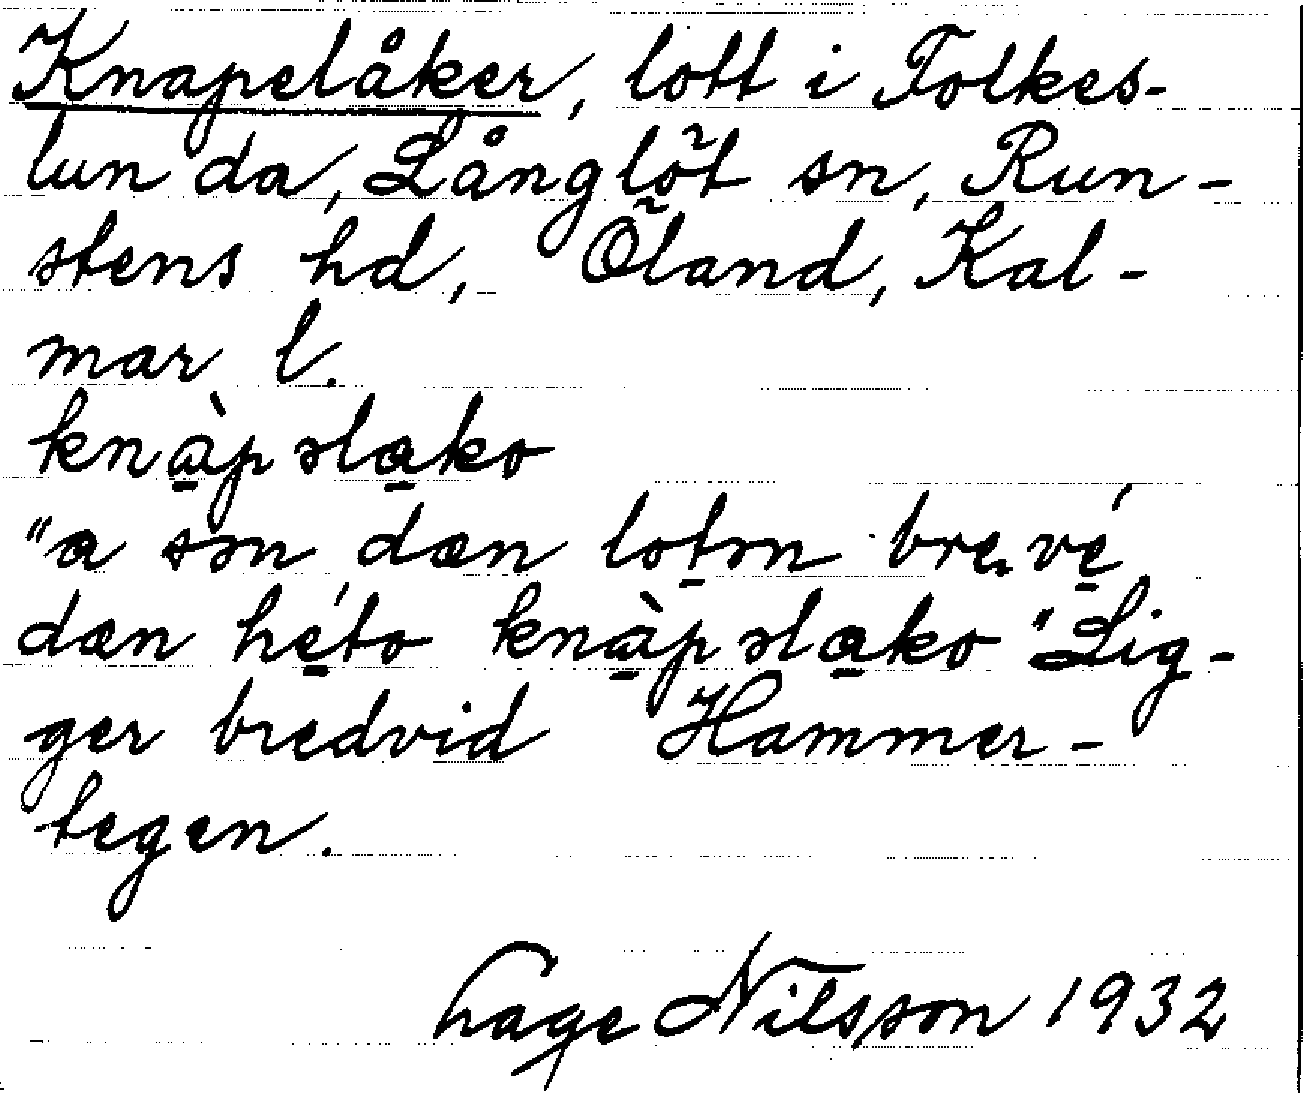 Knapelåker, lott i Folkes-
lunda, Långlöt sn, Run-
stens hd, Öland, Kal-
mar l.
knàpəlako
"a son dæn lotən breve
dæn héto knàpəlako" Lig-
ger bredvid Hammer-
tegen.
Hage Nilsson 1932